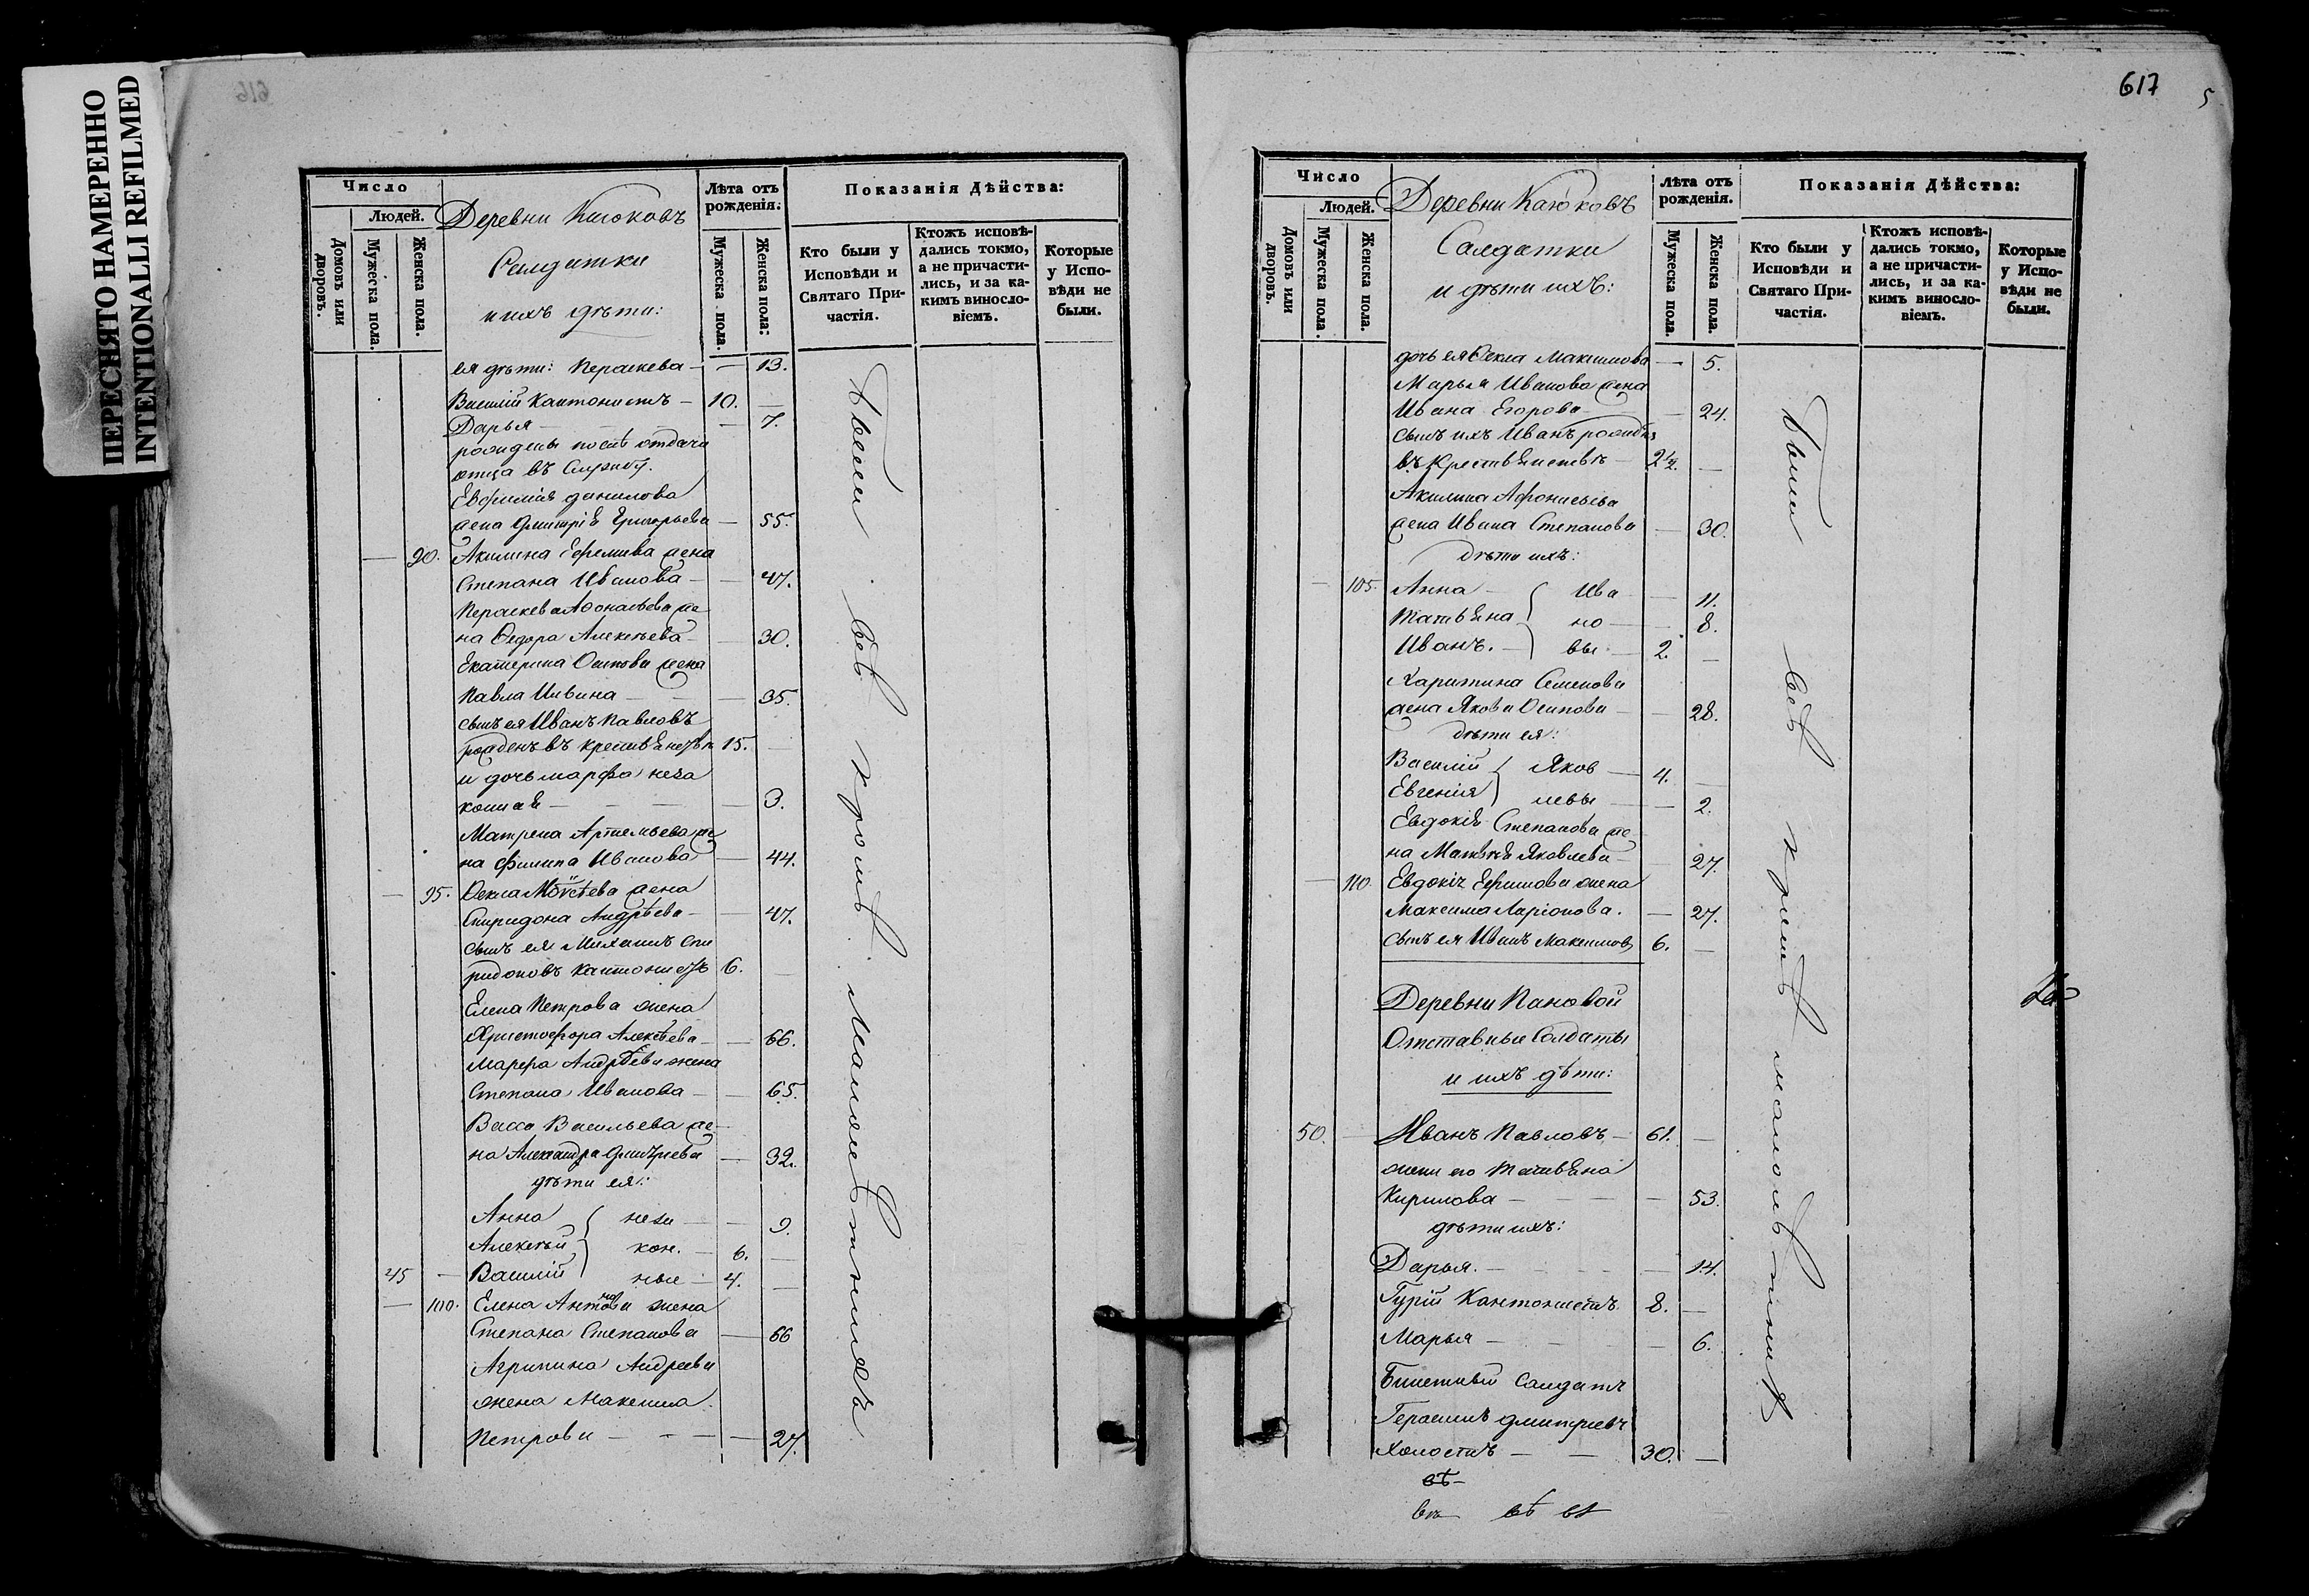 ПЕРЕСНЯТО НАМЕРЕННО
INTENTIONALLI REFILMED
616
Число
Людей.
Домовъ или дворовъ.
Мужеска пола.
Женска пола.
Деревни Каюковъ
Салдатки
и ихъ дѣти:
Лѣта отъ рожденія:
Мужеска пола.
Женска пола:
Показанія Дѣйства:
Кто были у Исповѣди и Святаго Причастія.
Ктожъ исповѣдались токмо, а не причастились, и за какимъ винословіемъ.
Которые у Исповѣди не были.
ея дѣти: Параскева — — 13.
Василій Кантонистъ — 10. —
Дарья — — 7.
рождены послѣ отдачи
отца въ Службу.
Евфимія Данилова
жена Дмитрія Григорьева — 55.
— 90. Акилина Ефремова жена
Степана Иванова — — 47.
Параскева Афонасьева же
на Ѳедора Алексѣева — — 30.
Екатерина Осипова жена
Павла Ильина — — 35.
сынъ ея Иванъ Павловъ
рожденъ въ крестьянствѣ 15.
и дочь Марфа неза
конная — — — — 3.
Матрена Артемьева же
на Филипа Иванова — 44.
— 95. Ѳекла Моѵсѣева жена
Спиридона Андрѣева — — 47.
сынъ ея Михаилъ Спи
ридоновъ кантонистъ 6. —
Елена Петрова жена
Христофора Алексѣева — — 66.
Марфа Андрѣева жена
Степана Иванова — — 65.
Васса Васильева же
на Александра Дмитріева — 32.
дѣти ея:
Анна неза — — 9.
Алексѣй кон. — 6. —
45 — Василій ные — 4. —
— 100. Елена Антонова жена
Степана Степанова — 66
Агрипина Андреева
жена Максима
Петрова — — — — 27.
Были всѣ кромѣ малолѣтнихъ
617
5
Число
Людей.
Домовъ или дворовъ.
Мужеска пола.
Женска пола.
Деревни Каюковъ
Салдатки
и дѣти ихъ:
Лѣта отъ рожденія.
Мужеска пола.
Женска пола.
Показанія Дѣйства:
Кто были у Исповѣди и Святаго Причастія.
Ктожъ исповѣдались токмо, а не причастились, и за какимъ винословіемъ.
Которые у Исповѣди не были.
дочь ея Ѳекла Максимова — 5.
Марья Иванова жена
Ивана Егорова — — 24.
сынъ ихъ Иванъ рожденъ
въ крестьянствѣ — 2½. —
Акилина Афонасьева
жена Ивана Степанова — 30.
дѣти ихъ:
— 105. Анна — Ива — 11.
Татьяна но — — 8.
Иванъ. — вы — 2. —
Харитина Семенова
жена Якова Осипова — — 28.
дѣти ея:
Василій Яков — 4. —
Евгенія левы — — 2.
Евдокія Степанова же
на Матвѣя Яковлева — 27.
— 110. Евдокія Ефимова жена
Максима Ларіонова. — 27.
сынъ ея Иванъ Максимовъ 6. —
Деревни Пановой
Отставные Солдаты
и ихъ дѣти:
50. — Иванъ Павловъ — 61. —
жена его Татьяна
Кирилова — — — 53.
дѣти ихъ:
Дарья. — — — 14.
Гурій Кантонистъ 8. —
Марья — — — 6.
Билетный Салдатъ
Герасимъ Дмитріевъ
Холостъ — — 30. —
Были всѣ кромѣ малолѣтнихъ